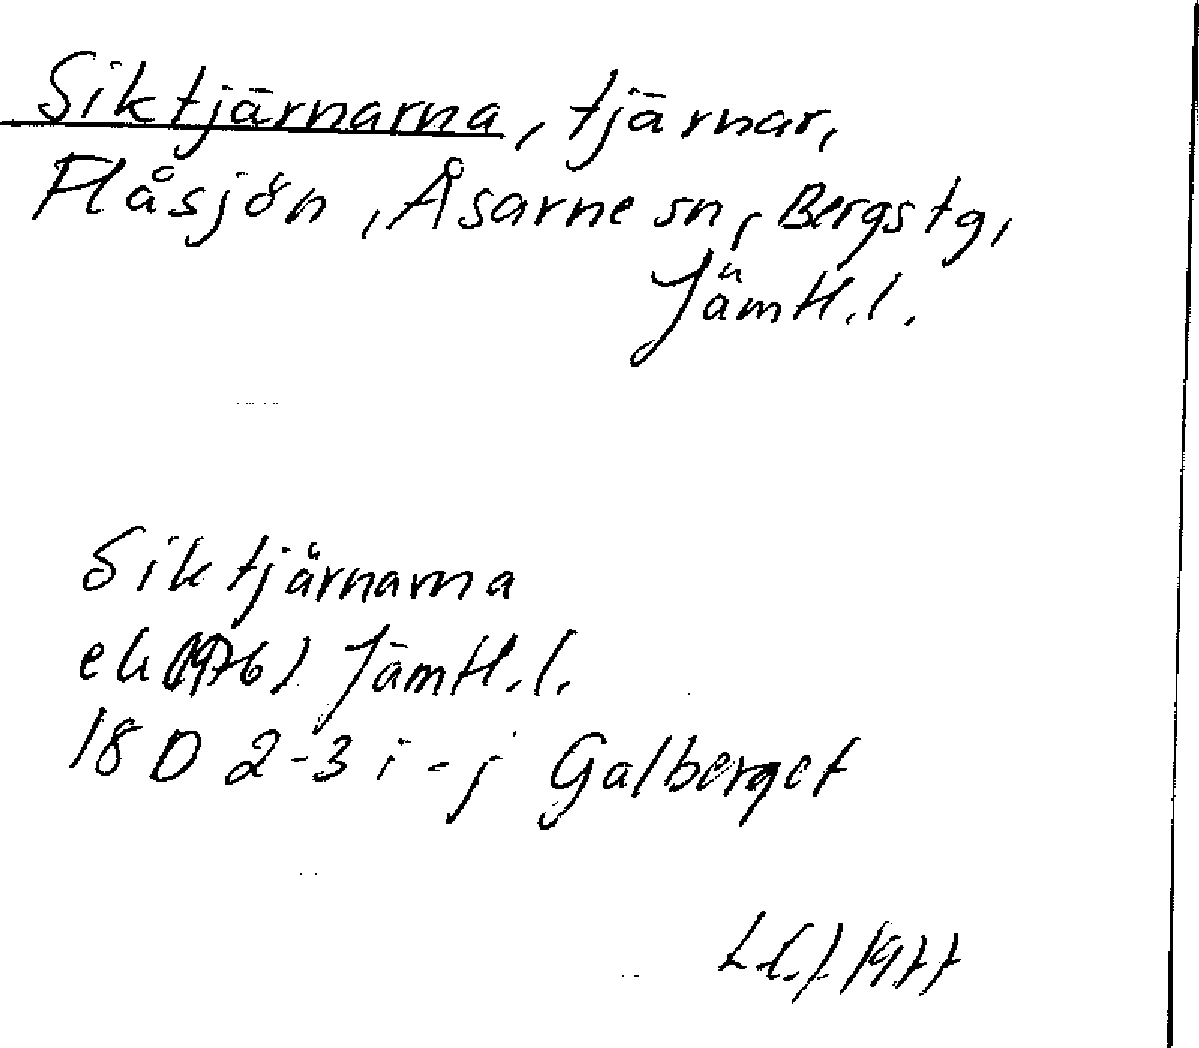 Siktjärnarna, tjärnar,
Flåsjön, Åsarne sn, Bergs tg,
Jämtl. l.
Siktjärnarna
ek (1976) Jämtl. l.
18 D 2-3 i-j Galberget
1977